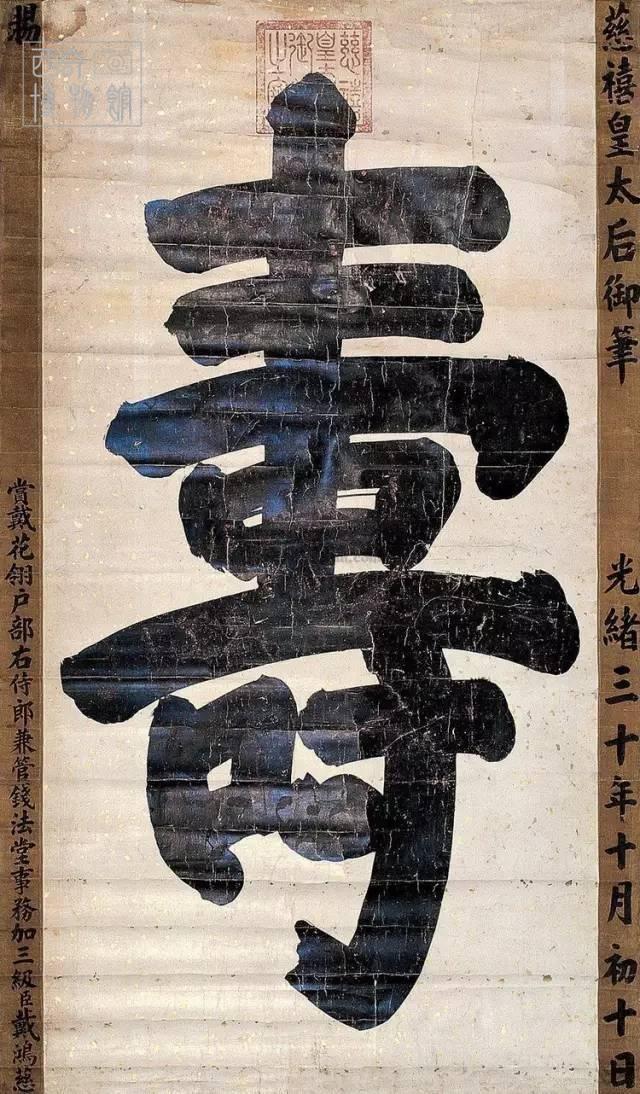 慈禧皇太后御筆
光緒三十年十月初十日
慈禧皇太后御筆之寶
壽
賜
賞戴花翎戶部右侍郎兼管錢法堂事務加三級臣戴鴻慈
博物館